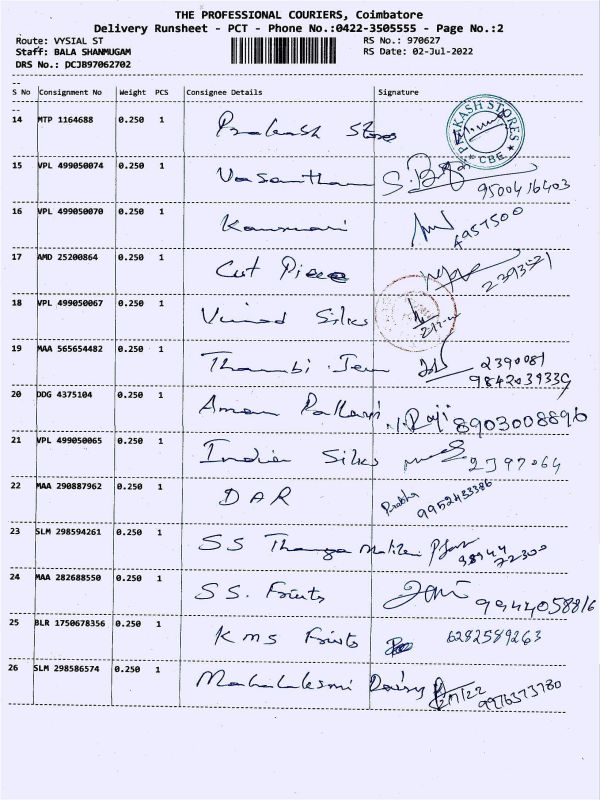 THE PROFESSIONAL COURIERS, Coimbatore
Delivery Runsheet - PCT - Phone No.:0422-3505555 - Page No.:2
Route: VYSIAL ST RS No.: 970627
Staff: BALA SHANMUGAM RS Date: 02-Jul-2022
DRS No.: DCJB97062702
S No Consignment No Weight PCS Consignee Details Signature
14 MTP 1164688 0.250 1 Prakash Store PRAKASH STORES CBE
15 VPL 499050074 0.250 1 Vasantham 9500416403
16 VPL 499050070 0.250 1 4957500
17 AMD 25200864 0.250 1 Cut Piece 2393521
18 VPL 499050067 0.250 1 Vinod Silks
19 MAA 565654482 0.250 1 Thambi 2390081
9842039339
20 DDG 4375104 0.250 1 Aman Pallavi Raji 8903008896
21 VPL 499050065 0.250 1 Indian Silks 2397064
22 MAA 290887962 0.250 1 DAR Prabha 9952433386
23 SLM 298594261 0.250 1 SS Thanga Maligai 98944
72300
24 MAA 282688550 0.250 1 S S. Fruits 9944058816
25 BLR 1750678356 0.250 1 KMS Fruits 6282589263
26 SLM 298586574 0.250 1 Mahalaksmi Dairy 2/7/22 9976373780